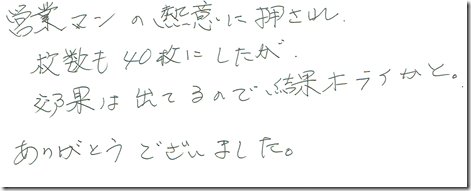 営業マンの熱意に押され、
枚数も40枚にしたが、
効果は出てるので、結果オーライかと。
ありがとうございました。